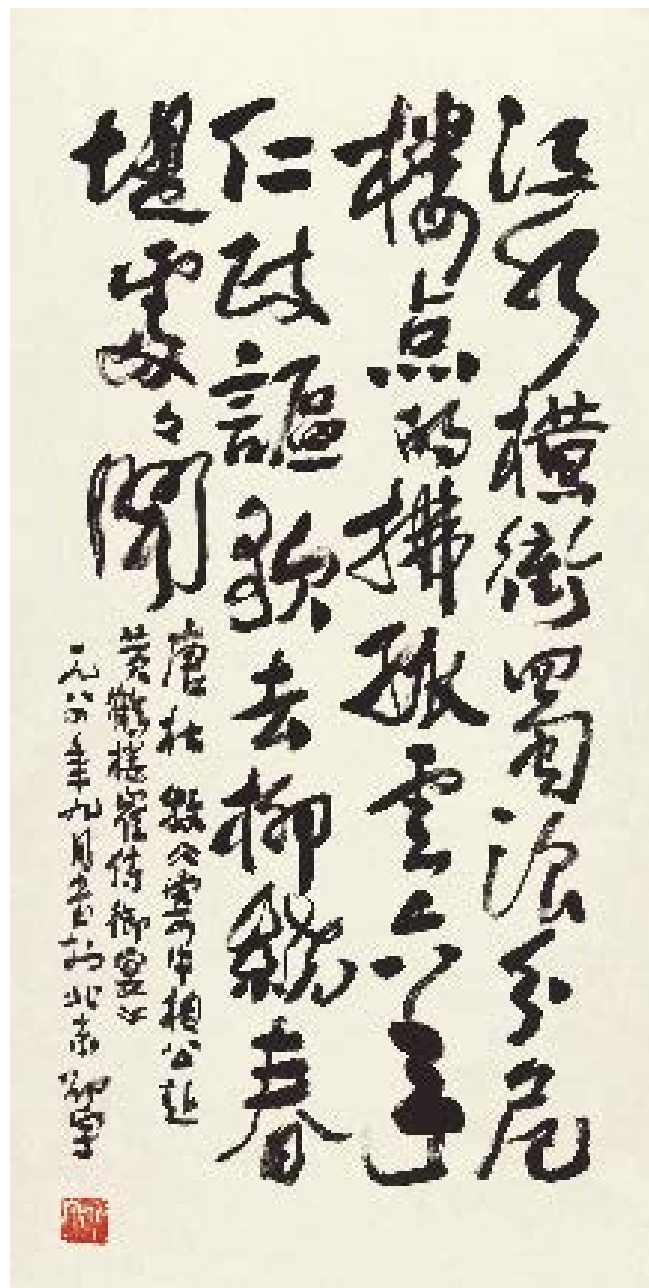 江水橫衝蜀浪分危
楼点的拂孤云六年
仁政謳歌去柳繞春
堤處々聞
唐杜牧寄牛相公赴
黄鹤楼崔侍御宴
一九八年九月书於北京邵宇